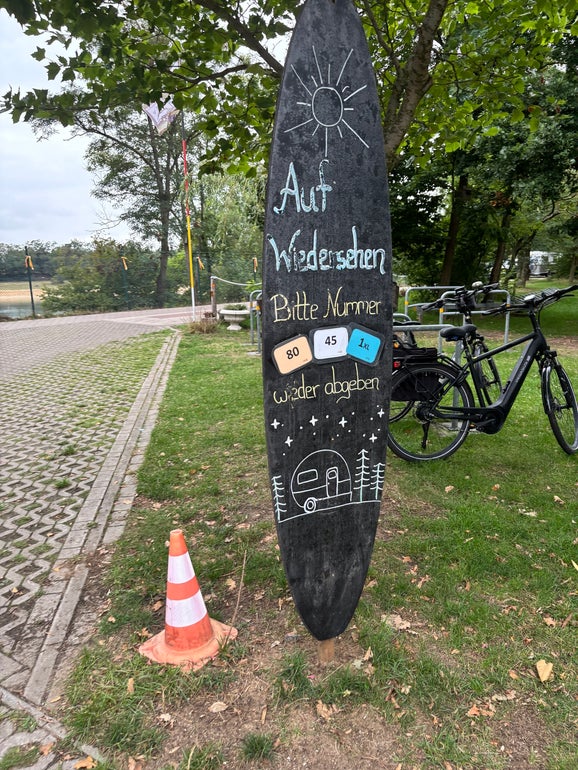 Auf
Wiedersehen
Bitte Nummer
80 45 1XL
wieder abgeben